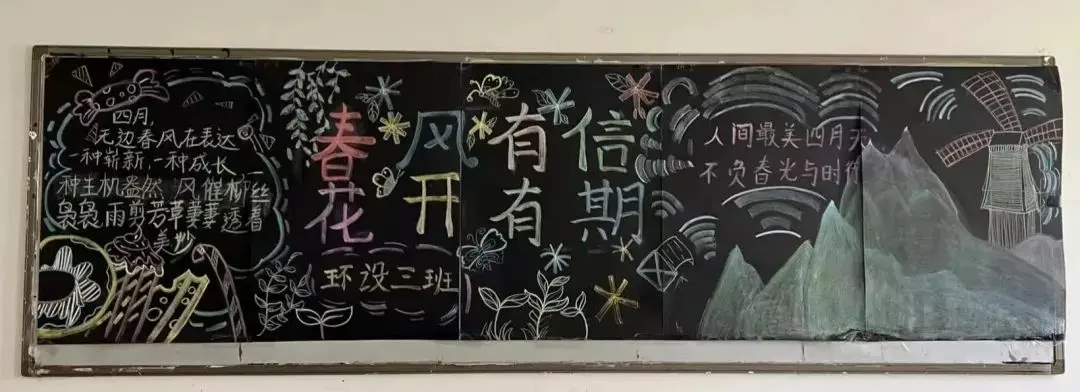 四月,
无边春风在表达
一种崭新,一种成长,一
种生机盎然 风催柳丝
袅袅,雨剪芳草萋萋透着
美妙
春风有信
花开有期
环设三班
人间最美四月天
不负春光与时